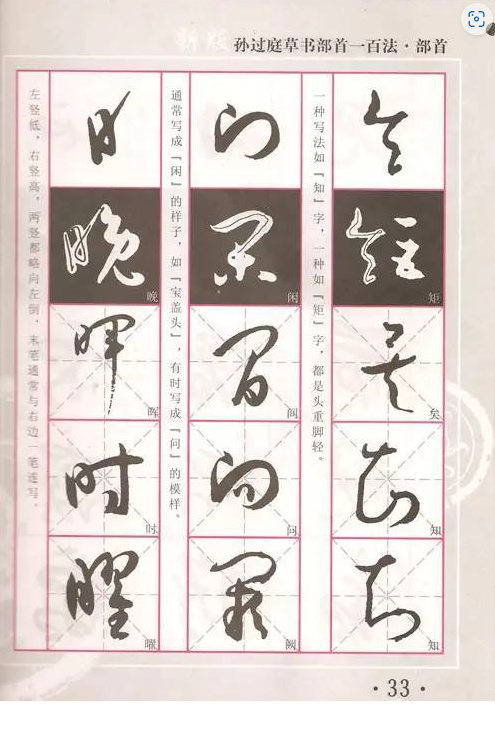 新版 孙过庭草书部首一百法·部首
一种写法如『知』字，一种如『矩』字，都是头重脚轻。
矩
矣
知
知
通常写成『闲』的样子，如『宝盖头』，有时写成『问』的模样。
闲
闾
问
阙
左竖低，右竖高，两竖都略向左倒，末笔通常与右边一笔连写。
日
晚
晖
时
曜
·33·